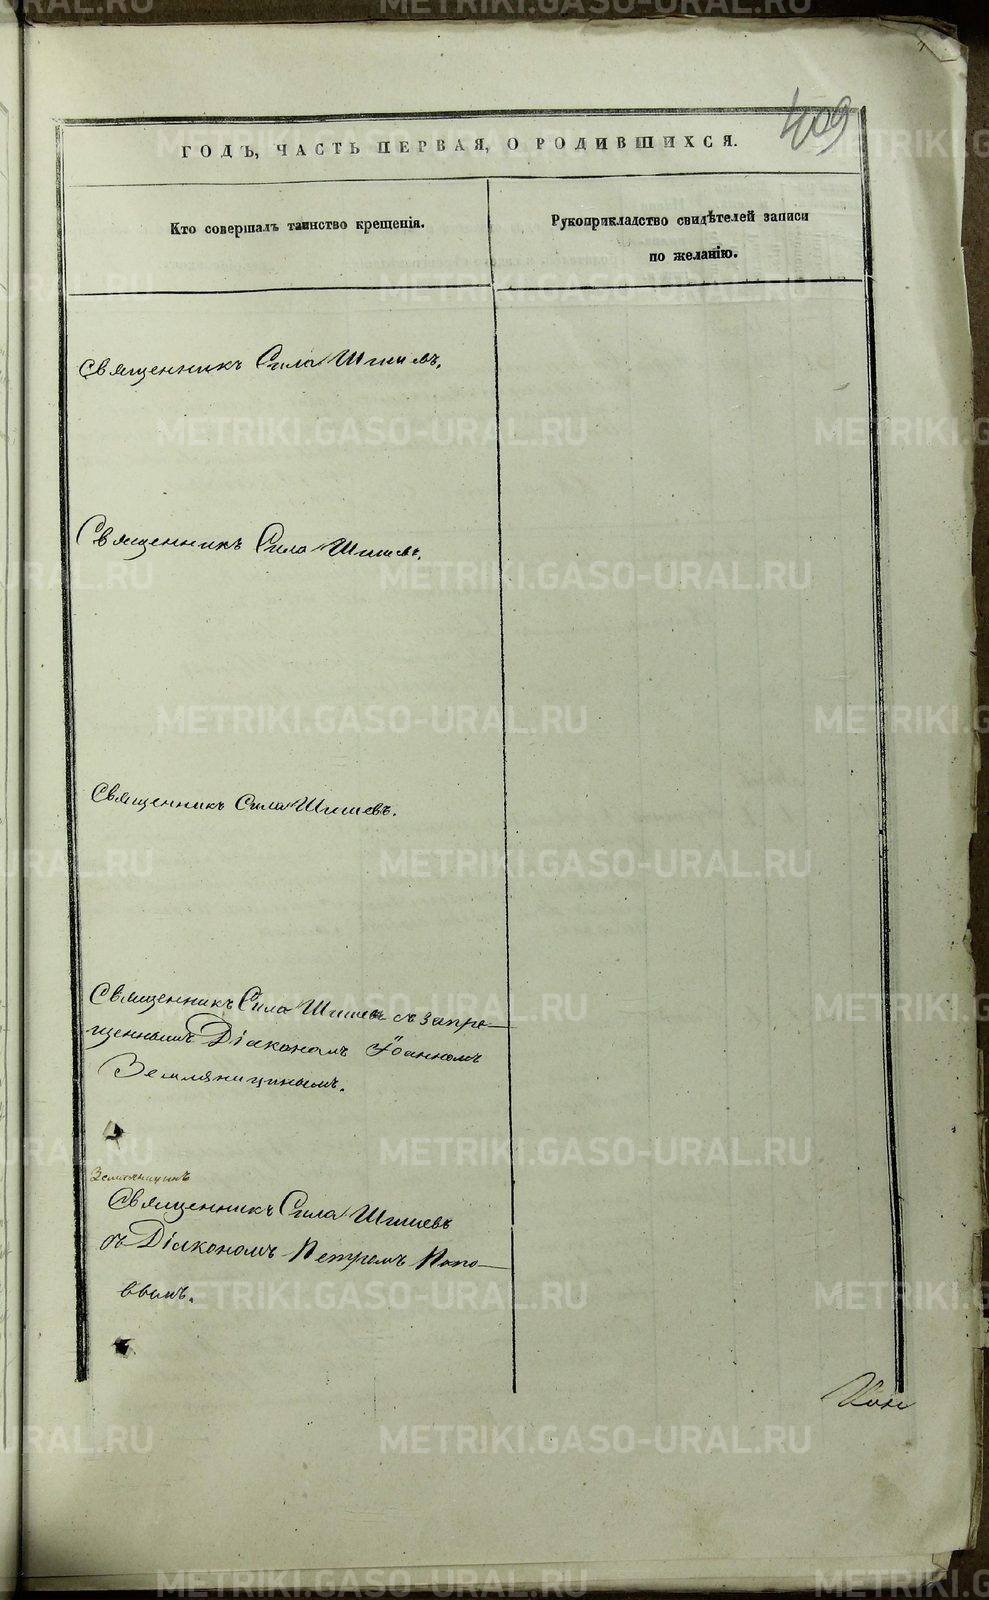 409
ГОДЪ, ЧАСТЬ ПЕРВАЯ, О РОДИВШИХСЯ.
Кто совершалъ таинство крещенія.
Рукоприкладство свидѣтелей записи
по желанію.
Священникъ Сила
Священникъ Сила
Священникъ Сила Шишевъ.
Священникъ Сила Шишевъ съ запре-
щеннымъ Діакономъ Іоанномъ
Земляницинымъ.
Земляницинъ
Священникъ Сила Шишевъ
съ Діакономъ Петромъ Попо-
вымъ.
METRIKI.GASO-URAL.RU